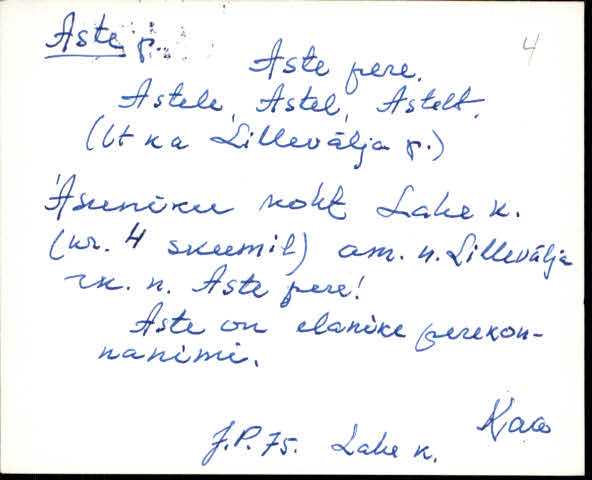 Aste p.
4
Aste pere.
Astele, Astel, Astelt.
(Vt ka Lillevälja p.)
Asuniku koht Lahe k.
(nr. 4 skeemil) am. n. Lillevälja
rk. n. Aste pere!
Aste on elanike perekon-
nanimi.
J.P. 75. Lahe k.